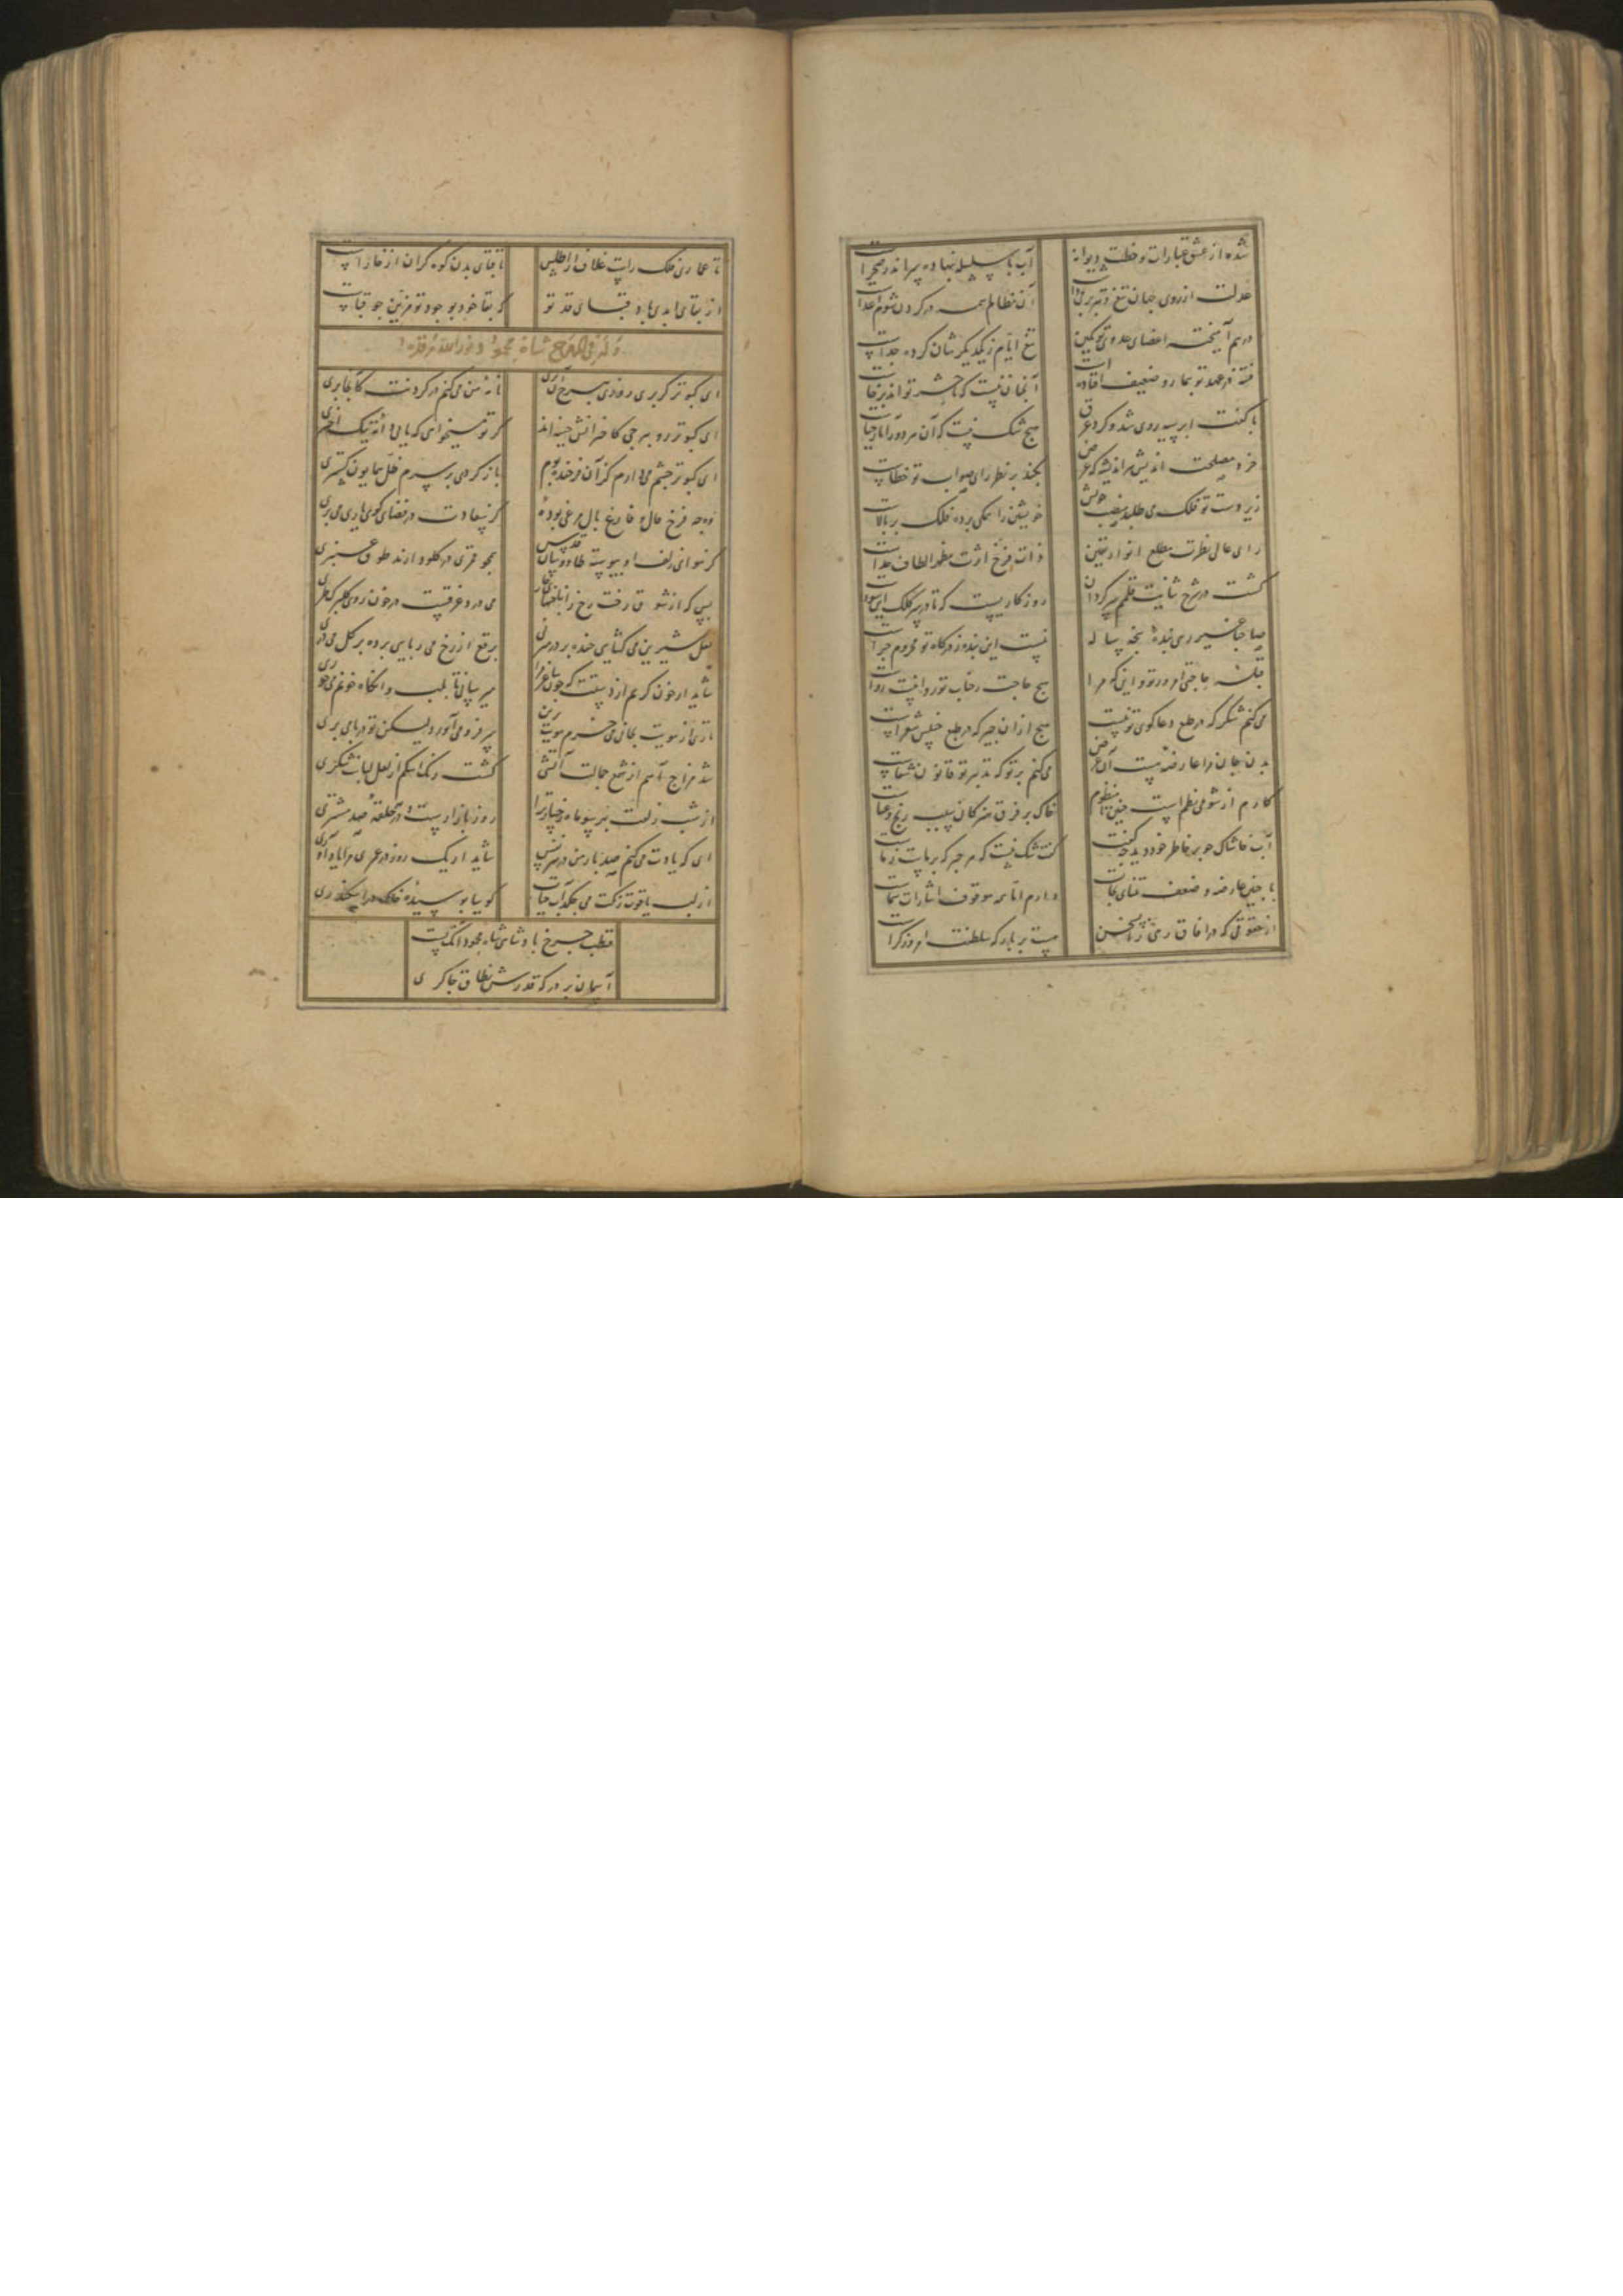 شده از عشق عبارات و خطت دیوانه آب با سلسله بنهاده سر اندر صحراست
عدلت از روی جهان تیغ و تبر برد آن مظالم همه در گردن شوم اعداست
درهم آمیخته اعضای عدوی تو بکین تیغ ایام ز یکدیگرشان کرده جداست
فتنه در عهد تو بیمار و ضعیف افتاده است آنچنان نیست که تا حشر تواند برخاست
با کفت ابر سیه روی شد و کرد عرق هیچ شک نیست که آن مرد
خرد مصلحت اندیش هر اندیشه که بجند بر نظر رای صواب تو خطاست
زیر دست تو فلک می طلبد منصب خویش خویشتن را همگی برده فلک بر بالاست
رای عالی نظرت مطلع انوار یقین ذات فرخ اثرت مظهر الطاف خداست
گشت در شرح ثنایت قلمم سرگردان روزگاریست که تا در سر کلک این سوداست
صاحبا غیر رهی بنده پنجه ساله نیست این بنده ز درگاه تو محروم چراست
قبله حاجتی امروز تو و این که مرا هیچ حاجت ز جناب تو روا نیست رواست
می کنم شکر که در طبع دعاگوی تو نیست هیچ از آن چیز که در طبع خسیس شعراست
بدن و جان مرا عارضه هست آن عرض می کنم بر تو که تدبیر تو قانون شفاست
کارم از شومی نظم است چنین نامنظوم خاک بر فرق هنر کان سبب رنج و عناست
آب خاشاکی چو بر خاطر خود دید چه گفت گفت شک نیست که هر چیز که بر ماست ز ماست
با چنین عارضه و ضعف تمنای نجات دارم اما همه موقوف اشارات شماست
از حقوقی که در آفاق رهی را ز سخن هست بر بارگه سلطنت امروز کراست
تا عماری فلک راست غلاف از اطلس تا قبای بدن کوه گران از خاراست
از بقای ابدی باد قبای قد تو که بقا خود بوجود تو مزین چو قباست
وله فی المدح شاه محمود نور الله مرقده
ای کبوتر گر بری روزی بسرخ آری نامه من می کنم در گردنت کانجا بری
ای کبوتر رو به برجی کاخترانش گر تو میخواهی که یابی دانه نیک اختری
ای کبوتر چشم می دارم کز آن فرخنده بوم باز گردی بر سرم ظل همایون گستری
وه چه فرخ فال و فارغ بال مرغی بوده کز سعادت در فضای کوی یاری می پری
کز هوای زلف او پیوسته طاووسان قدس همچو قمری در گلو دارند طوق عنبری
بس که از شوق رخت رخ را بناخنهای می درد غرقست در خون روی گلبرک طری
لعل شیرین می گشایی خنده بر در می زنی برقع از رخ می ربایی پرده بر گل می دری
شاید ار خون گریم از دستت که جون ساغر مرا می رسانی تا بلب وانگاه خونم می خوری
تاری از مویت بجانی می خرم مویت سر فرو می آورد لیکن تو در پا می بری
شد مزاج آهم از شمع جمالت آتشی گشت رنگ اشکم از لعل لبانت شکری
از شب زلفت بهر سو ماه رخسار ترا روز بازارست و در هر حلقه صد مشتری
ای که یادت می کنم صد بار من در هر نفس شاید ار یک روز در عمری مرا یاد آوری
از لب یاقوت رنگت می چکد آب حیات گوییا بوسیده خاک در اسکندری
قطب چرخ پادشاهی شاه محمود آنکه بست
آسمان بر درگه قدرش نطاق چاکری